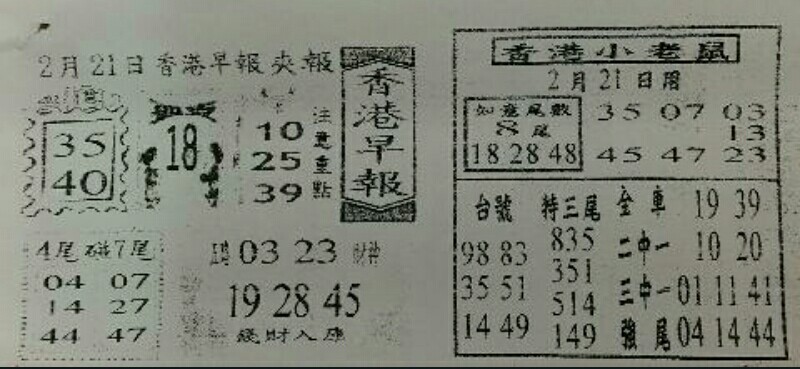 2月21日香港早報夾報
香港早報
35
40
18
10
25
39
注意重點
4尾碰7尾
04 07
14 27
44 47
03 23 財神
19 28 45
錢財入庫
香港小老鼠
2月21日用
如意尾數
8尾
18 28 48
35 07 03
13
45 47 23
台號 特三尾 全車 19 39
98 83 835 二中一 10 20
35 51 351 三中一 01 11 41
14 49 514 強尾 04 14 44
149